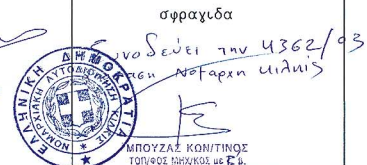 σφραγιδα
Συνοδεύει την 4362/03
Νομαρχη Κιλκίς
ΕΛΛΗΝΙΚΗ ΔΗΜΟΚΡΑΤΙΑ
ΝΟΜΑΡΧΙΑΚΗ ΑΥΤΟΔΙΟΙΚΗΣΗ ΚΙΛΚΙΣ
ΜΠΟΥΖΑΣ ΚΩΝ/ΤΙΝΟΣ
ΤΟΠ/ΦΟΣ ΜΗΧ/ΚΟΣ με